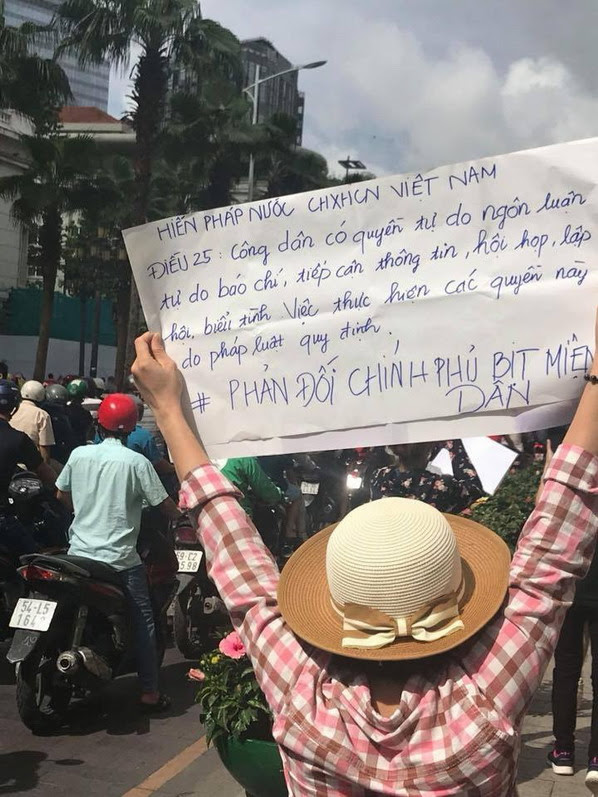 HIẾN PHÁP NƯỚC CHXHCN VIỆT NAM
ĐIỀU 25: Công dân có quyền tự do ngôn luận
tự do báo chí, tiếp cận thông tin, hội họp, lập
hội, biểu tình Việc thực hiện các quyền này
do pháp luật quy định.
# PHẢN ĐỐI CHÍNH PHỦ BỊT MIỆN
DÂN
54-L5
59-C2